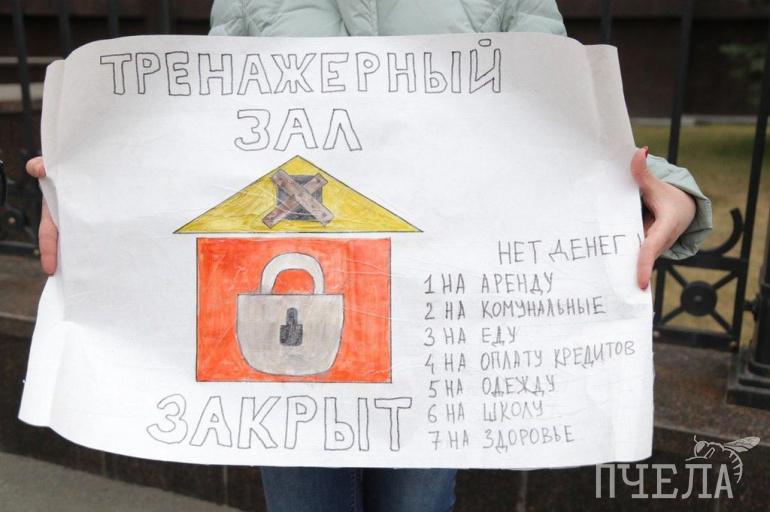 ТРЕНАЖЕРНЫЙ
ЗАЛ
ЗАКРЫТ
НЕТ ДЕНЕГ!
1 НА АРЕНДУ
2 НА КОМУНАЛЬНЫЕ
3 НА ЕДУ
4 НА ОПЛАТУ КРЕДИТОВ
5 НА ОДЕЖДУ
6 НА ШКОЛУ
7 НА ЗДОРОВЬЕ
ПЧЕЛА